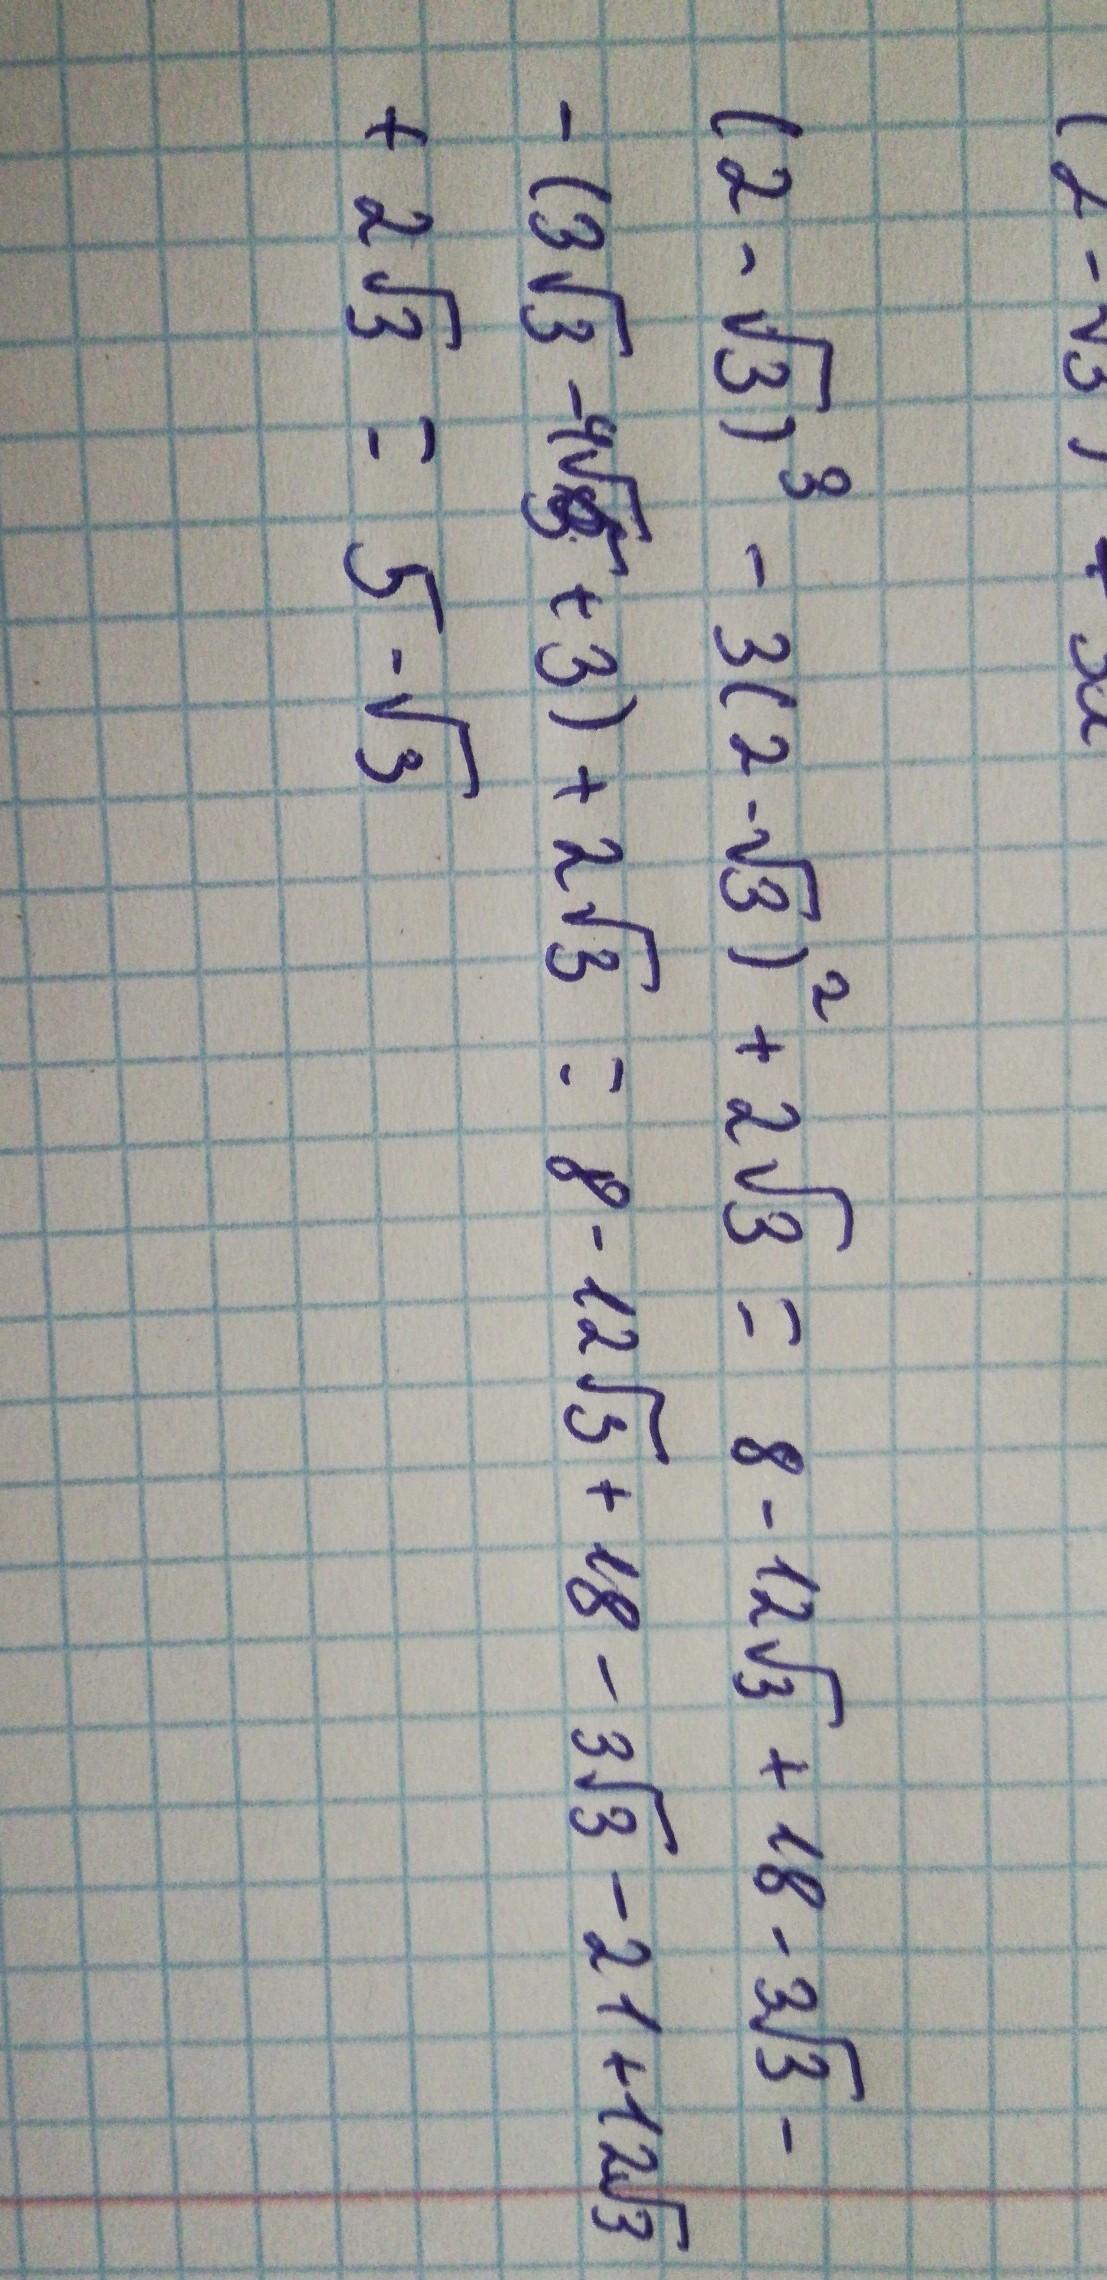 (2-√3)³ - 3(2-√3)² + 2√3 = 8 - 12√3 + 18 - 3√3 -
- (3√3 - 4√3 + 3) + 2√3 = 8 - 12√3 + 18 - 3√3 - 21 + 12√3
+ 2√3 = 5 - √3